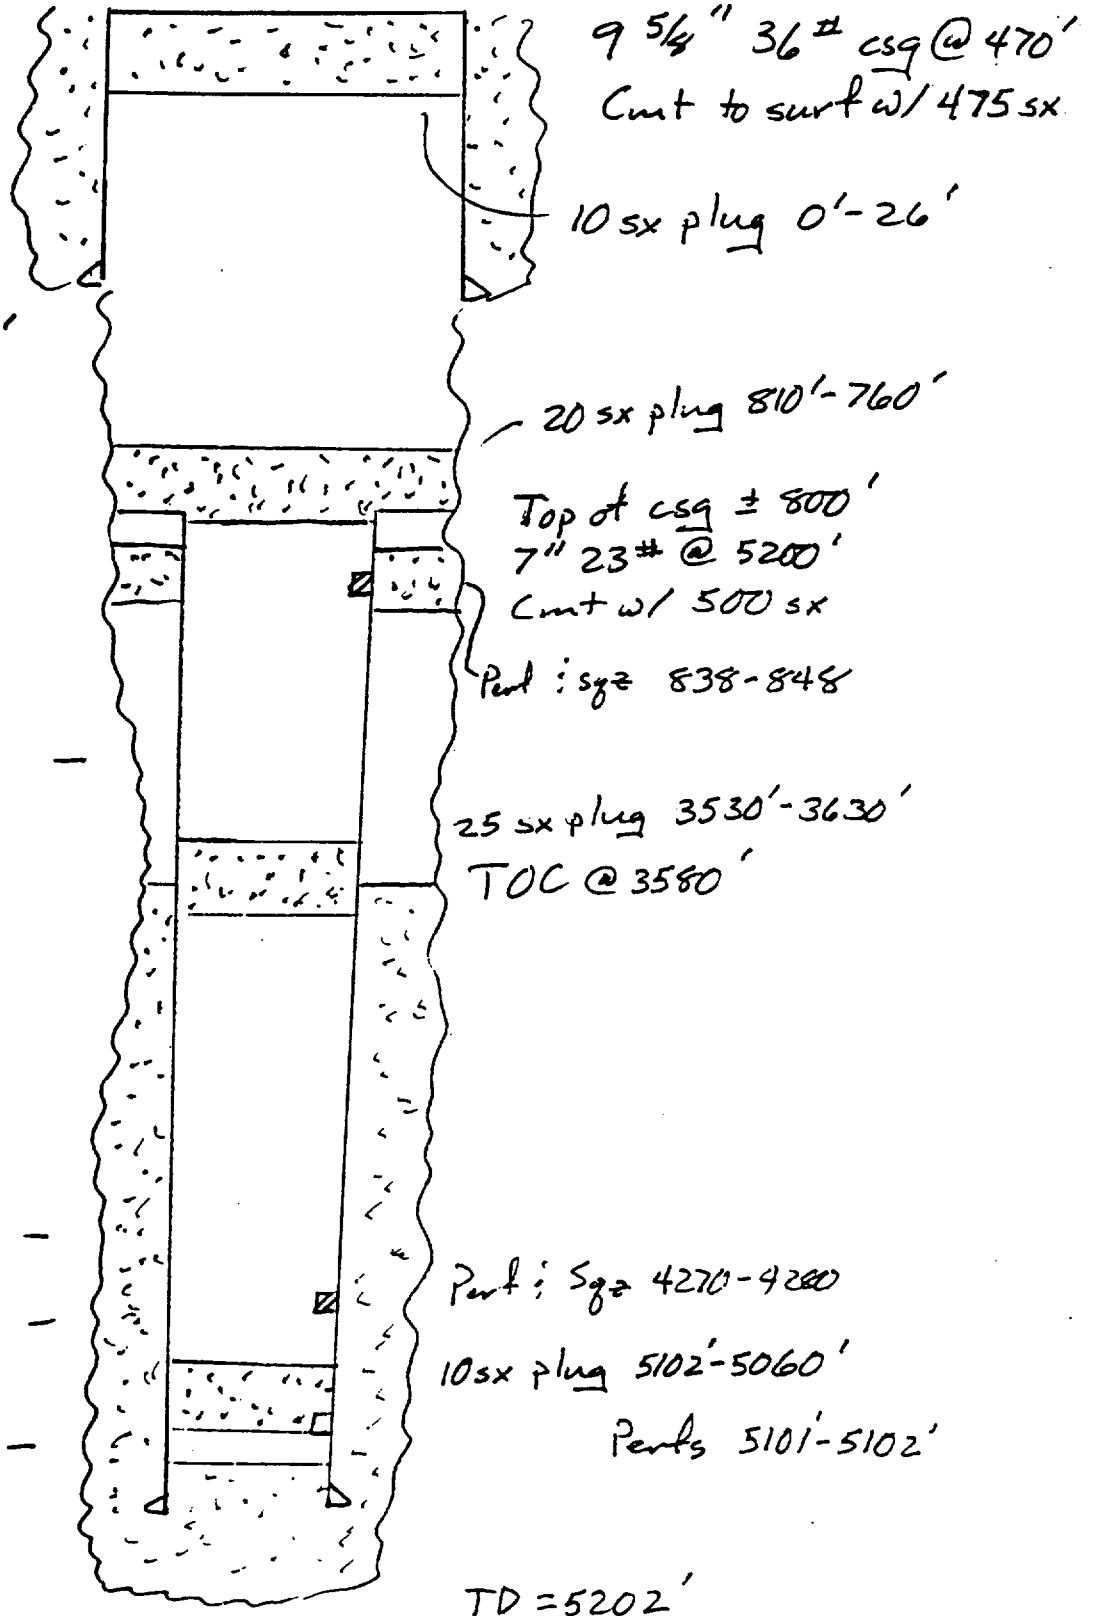 9 5/8" 36# csg @ 470'
Cmt to surf w/ 475 sx
10 sx plug 0'-26'
20 sx plug 810'-760'
Top of csg ± 800'
7" 23# @ 5200'
Cmt w/ 500 sx
Perf & sqz 838-848
25 sx plug 3530'-3630'
TOC @ 3580'
Perf & Sqz 4270-4280
10 sx plug 5102'-5060'
Perfs 5101'-5102'
TD = 5202'